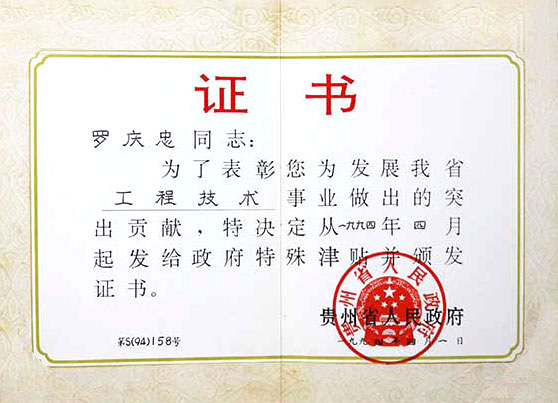 证书
罗庆忠同志：
为了表彰您为发展我省
工程技术事业做出的突
出贡献，特决定从一九九四年四月
起发给政府特殊津贴并颁发
证书。
贵州省人民政府
贵州省人民政府
第S(94)158号
一九九四年四月一日